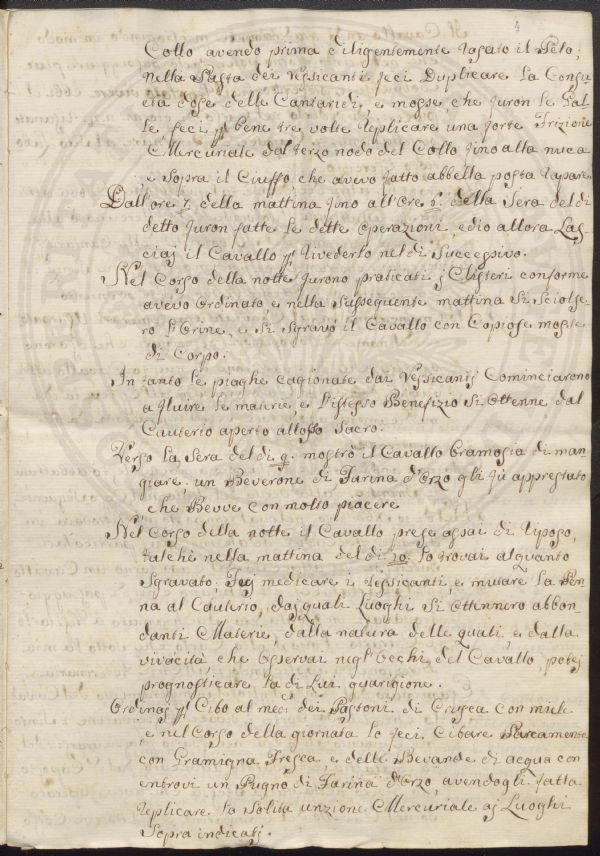 4
Collo avendo prima diligentemente rasato il Pelo;
nella Pasta dei Vessicanti feci Duplicare la Consu
eta dose delle Cantaridi, e mosse, che furon le Pal
le, feci p bene tre volte replicare una forte Frizione
Mercuriale dal terzo nodo del Collo fino alla nuca
e sopra il Ciuffo che avevo fatto abbella posta rapare.
Dall'ore 7. della mattina fino all'Ore della Sera del di
detto furon fatte le dette operazioni, ed io allora Las-
ciaj il Cavallo p rivederlo nel di Successivo.
Nel Corso della notte furono praticati j Clisteri conforme
avevo Ordinato, e nella Susseguente mattina si Sciolse-
ro l'Orine, e si sgravò il Cavallo con Copiose mosse
di Corpo.
In tanto le piaghe cagionate dai Vessicantj Cominciarono
a fluire le materie, e l'istesso Benefizio si Ottenne dal
Cauterio aperto all'osso Sacro.
Verso la Sera del di 9. mostrò il Cavallo bramosia di man
giare, un Beverone di Farina d'Orzo gli fù apprestato
che Bevve con molto piacere
Nel Corso della notte il Cavallo prese assai di riposo,
talchè nella mattina del di 10. lo trovai alquanto
Sgravato; Fecj medicare i Vessicanti, e mutare la Pen
na al Cauterio, dai quali Luoghi si Ottennero abbon
danti Materie, dalla natura delle quali, e dalla
vivacità che Osservai negl'Occhi del Cavallo, potej
prognosticare la di Lui guarigione.
Ordinaj p Cibo al med. dei Pastoni di Crusca con miele
e nel Corso della giornata lo feci Cibare Parcamente
con Gramigna Fresca, e delle Bevande di acqua con
entrovi un Pugno di Farina d'Orzo, avendogli fatta
replicare la Solita unzione Mercuriale aj Luoghi
Sopra indicatj.